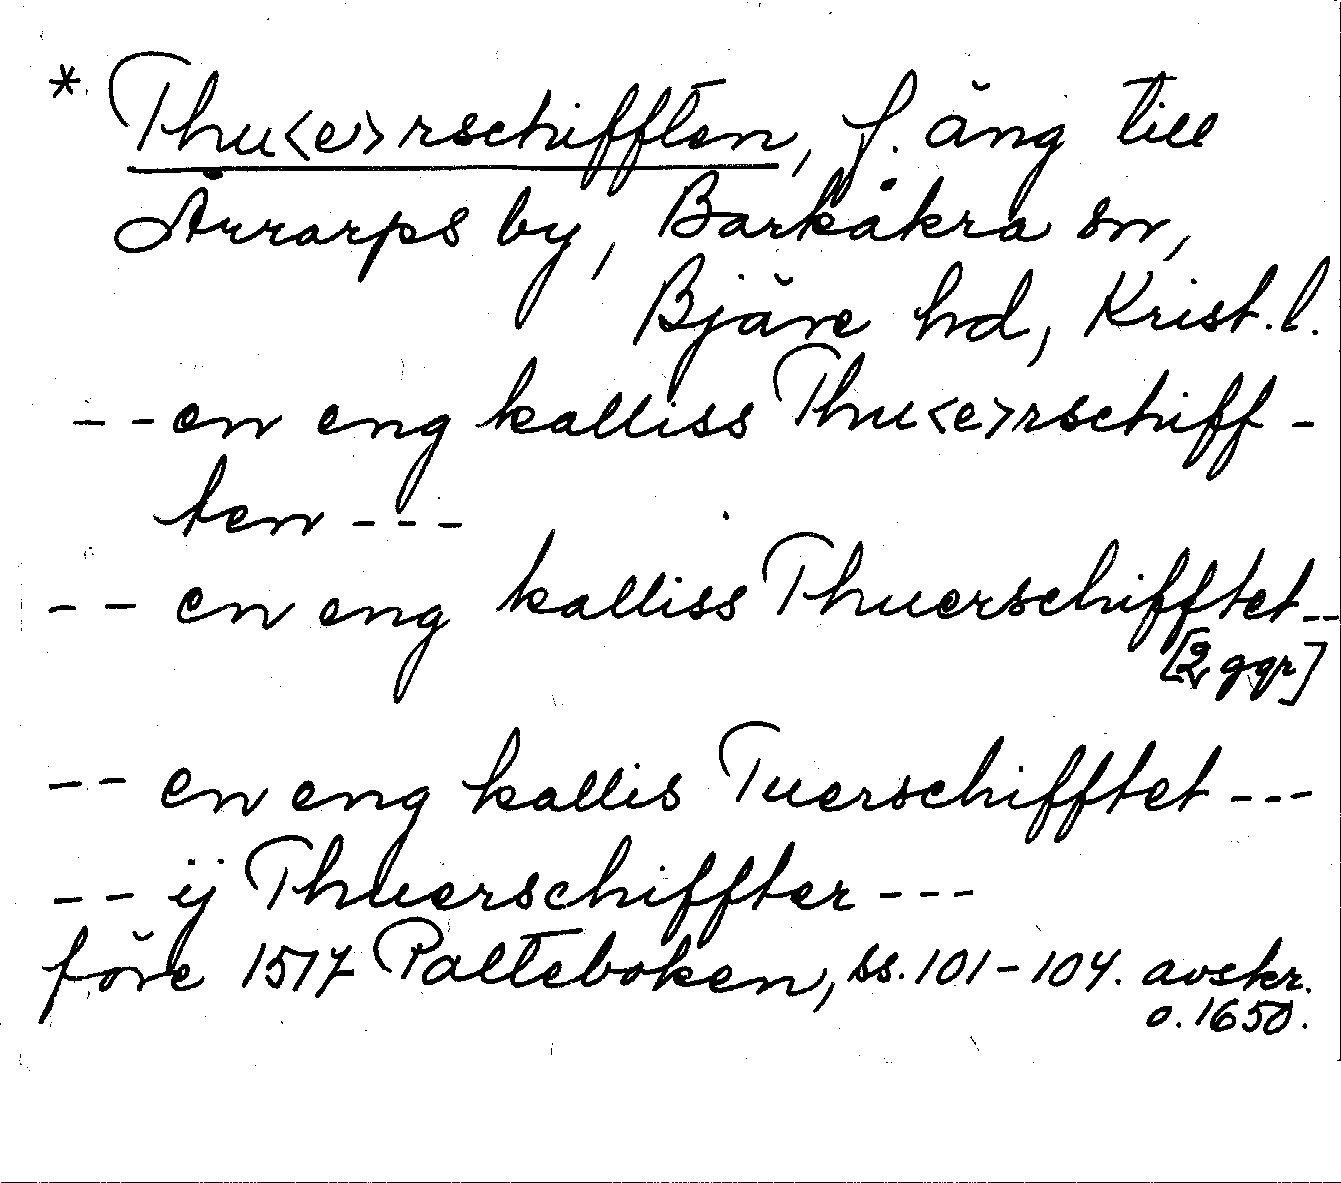 * Thu<e>rschifften, f. äng till
Ärrarps by, Barkåkra sn,
Bjäre hd, Krist. l.
-- en eng kalliss Thu<e>rschiff-
ten ---
-- en eng kalliss Thuerschifftet --
[2 ggr]
-- en eng kallis Tuerschifftet ---
-- ij Thuerschiffter ---
före 1517 Palteboken, ss. 101-104. avskr.
o. 1650.